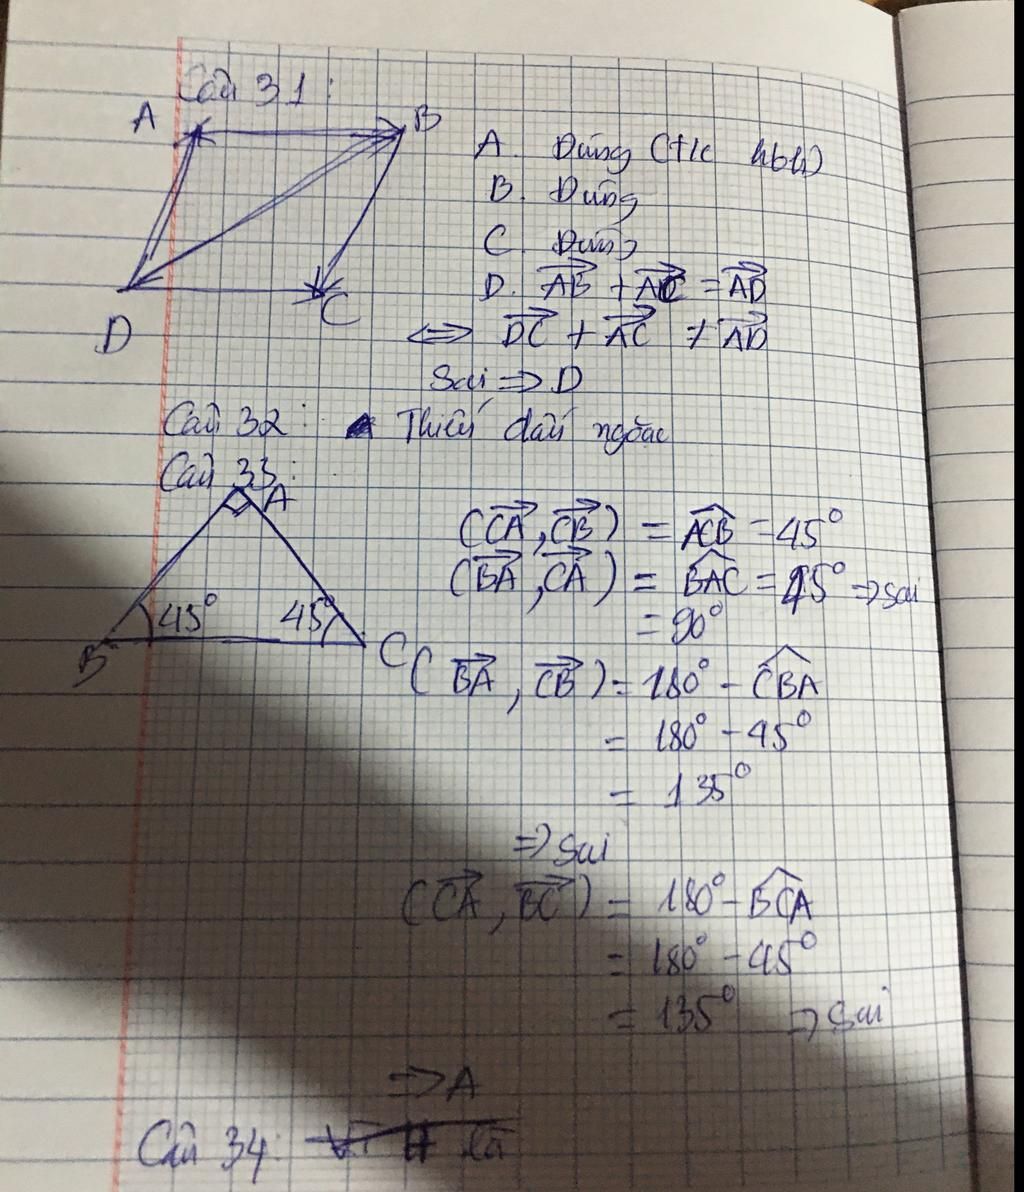 Câu 31:
A B
A. Đúng (t/c hbh)
B. Đúng
C. Đúng
D. $\overrightarrow{AB} + \overrightarrow{AC} = \overrightarrow{AD}$
D C
⇔ $\overrightarrow{DC} + \overrightarrow{AC} \neq \overrightarrow{AD}$
Sai ⇒ D
Câu 32: Thiếu dấu ngoặc
Câu 33:
A
$(\overrightarrow{CA}, \overrightarrow{CB}) = \widehat{ACB} = 45°$
$(\overrightarrow{BA}, \overrightarrow{CA}) = \widehat{BAC} = 45°$ ⇒ sai
= 90°
45° 45°
B C
$(\overrightarrow{BA}, \overrightarrow{CB}) = 180° - \widehat{CBA}$
= 180° - 45°
= 135°
⇒ sai
$(\overrightarrow{CA}, \overrightarrow{BC}) = 180° - \widehat{BCA}$
= 180° - 45°
= 135° ⇒ sai
⇒ A
Câu 34: